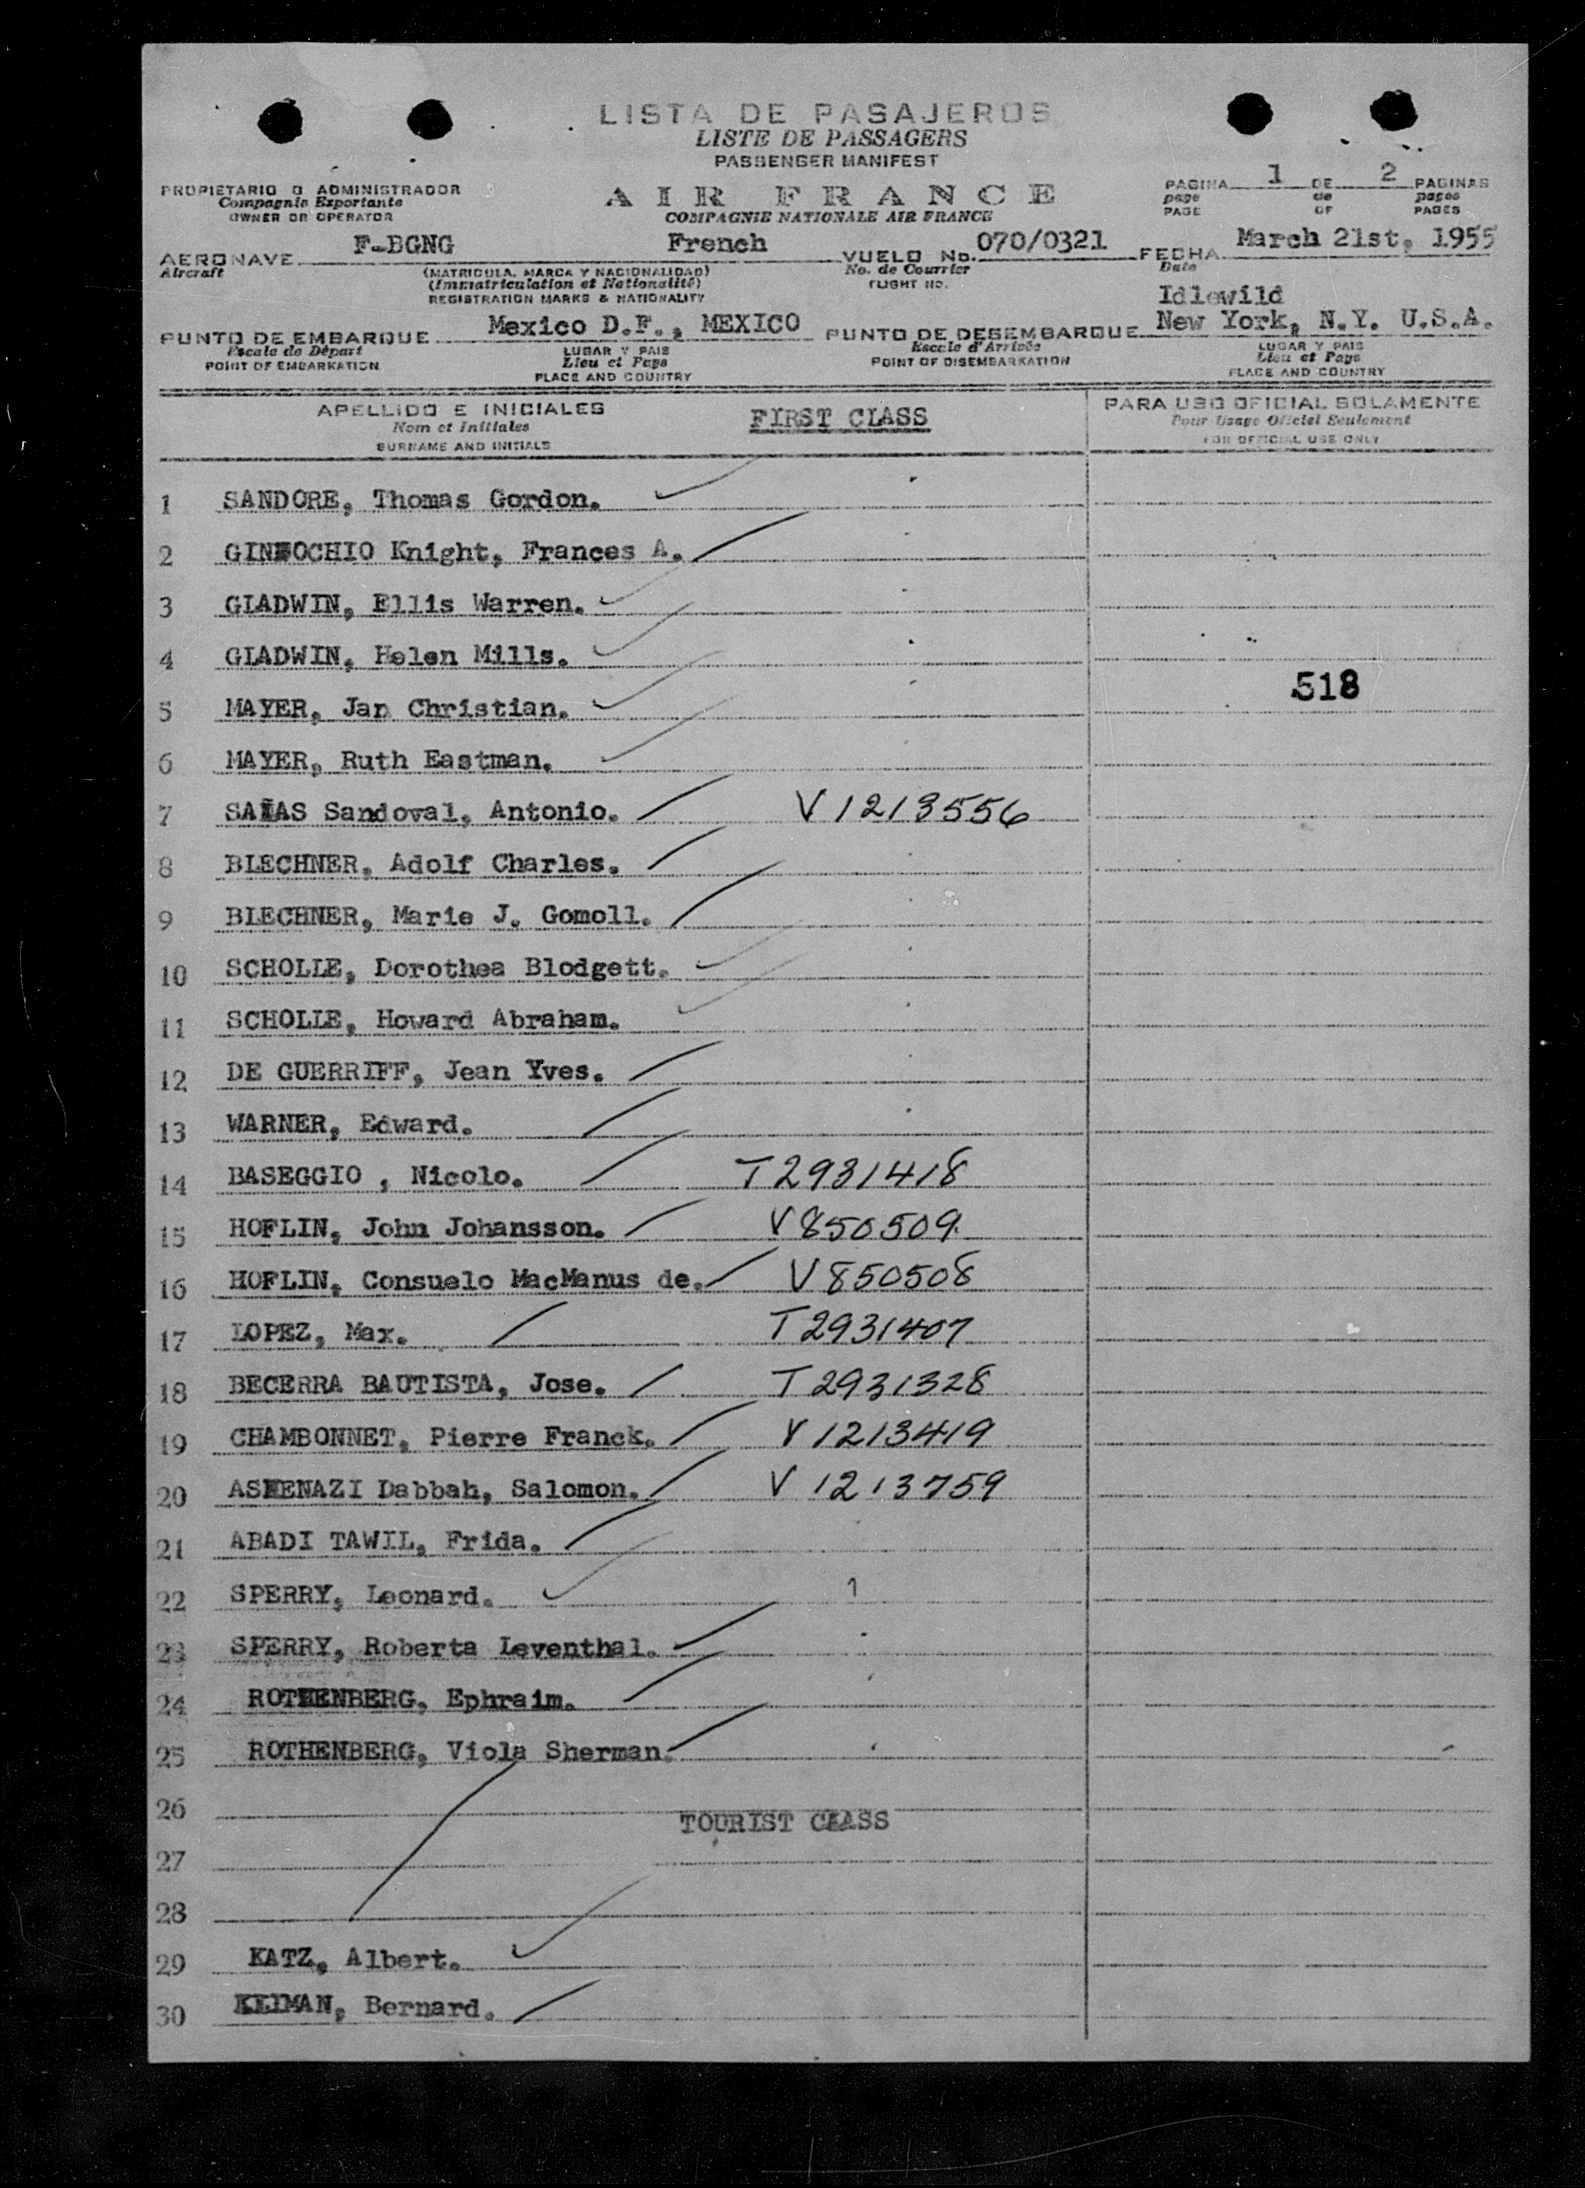 LISTA DE PASAJEROS
LISTE DE PASSAGERS
PASSENGER MANIFEST
PROPIETARIO O ADMINISTRADOR
Compagnie Exportante
OWNER OR OPERATOR
AIR FRANCE
COMPAGNIE NATIONALE AIR FRANCE
PAGINA 1 DE 2 PAGINAS
page de pages
PAGE OF PAGES
AERONAVE F-BGNG French VUELO No. 070/0321 FECHA March 21st, 1955
Aircraft (MATRICULA, MARCA Y NACIONALIDAD) No. de Courrier Date
(Immatriculation et Nationalité) FLIGHT NO.
REGISTRATION MARKS & NATIONALITY
Idlewild
PUNTO DE EMBARQUE Mexico D.F., MEXICO PUNTO DE DESEMBARQUE New York, N.Y. U.S.A.
Escale de Départ LUGAR Y PAIS Escale d'Arrivée LUGAR Y PAIS
POINT OF EMBARKATION Lieu et Pays POINT OF DISEMBARKATION Lieu et Pays
PLACE AND COUNTRY PLACE AND COUNTRY
APELLIDO E INICIALES FIRST CLASS PARA USO OFICIAL SOLAMENTE
Nom et Initiales Pour Usage Officiel Seulement
SURNAME AND INITIALS FOR OFFICIAL USE ONLY
1 SANDORE, Thomas Gordon.
2 GINNOCHIO Knight, Frances A.
3 GLADWIN, Ellis Warren.
4 GLADWIN, Helen Mills.
518
5 MAYER, Jan Christian.
6 MAYER, Ruth Eastman.
7 SALAS Sandoval, Antonio. V1213556
8 BLECHNER, Adolf Charles.
9 BLECHNER, Marie J. Gomoll.
10 SCHOLLE, Dorothea Blodgett.
11 SCHOLLE, Howard Abraham.
12 DE GUERRIFF, Jean Yves.
13 WARNER, Edward.
14 BASEGGIO , Nicolo. T2931418
15 HOFLIN, John Johansson. V850509
16 HOFLIN, Consuelo MacManus de. V850508
17 LOPEZ, Max. T2931407
18 BECERRA BAUTISTA, Jose. T2931328
19 CHAMBONNET, Pierre Franck. V1213419
20 ASKENAZI Dabbah, Salomon. V 1213759
21 ABADI TAWIL, Frida.
22 SPERRY, Leonard.
23 SPERRY, Roberta Leventhal.
24 ROTHENBERG, Ephraim.
25 ROTHENBERG, Viola Sherman.
26
TOURIST CLASS
27
28
29 KATZ, Albert.
30 KLIMAN, Bernard.